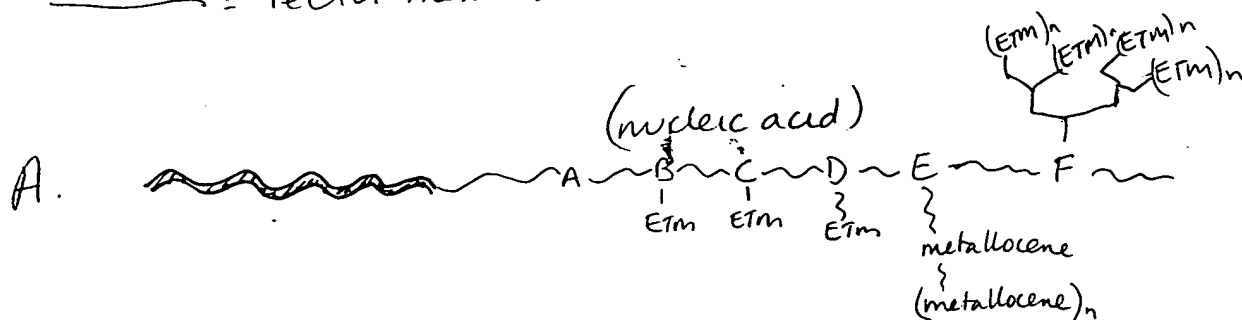 (ETM)n (ETM)n (ETM)n
(ETM)n
(nucleic acid)
A. A B C D E F
ETM ETM ETM
metallocene
(metallocene)n